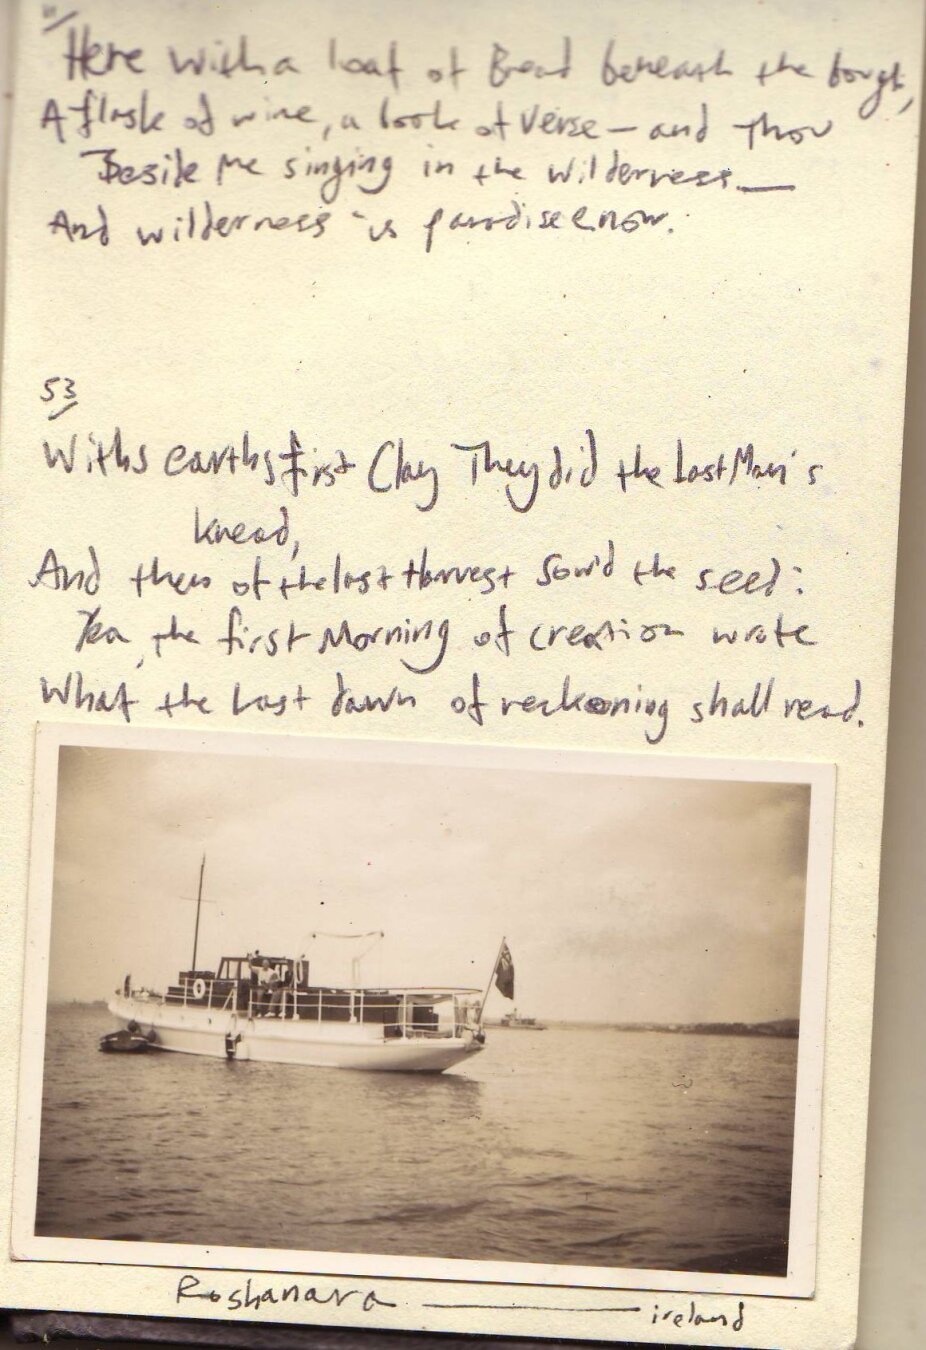 11
Here with a loaf of Bread beneath the bough,
A flask of wine, a book of Verse – and Thou
Beside Me singing in the wilderness —
And wilderness is paradise enow.
53
With's earths first Clay They did the Last Man's
knead,
And then of the last Harvest Sow'd the seed:
Yea, the first Morning of creation wrote
What the Last dawn of reckoning shall read.
Roshanara — ireland